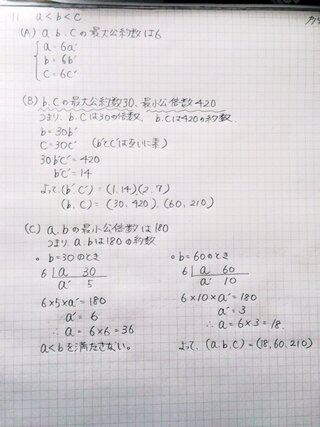 11 a<b<c
(A) a.b.cの最大公約数は6
a=6a'
b=6b'
c=6c'
(B) b.cの最大公約数30、最小公倍数420
つまり、b.cは30の倍数、b.cは420の約数
b=30b'
c=30c' (b'とc'は互いに素)
30b'c'=420
b'c'=14
よって、(b'c')=(1,14),(2,7)
(b.c)=(30,420),(60,210)
(C) a.bの最小公倍数は180
つまり a.bは180の約数
○ b=30のとき
6 a 30
a' 5
6×5×a'=180
a'=6
∴a=6×6=36
a<bを満たさない。
○ b=60のとき
6 a 60
a' 10
6×10×a'=180
a'=3
∴a=6×3=18.
よって、(a.b.c)=(18,60,210)